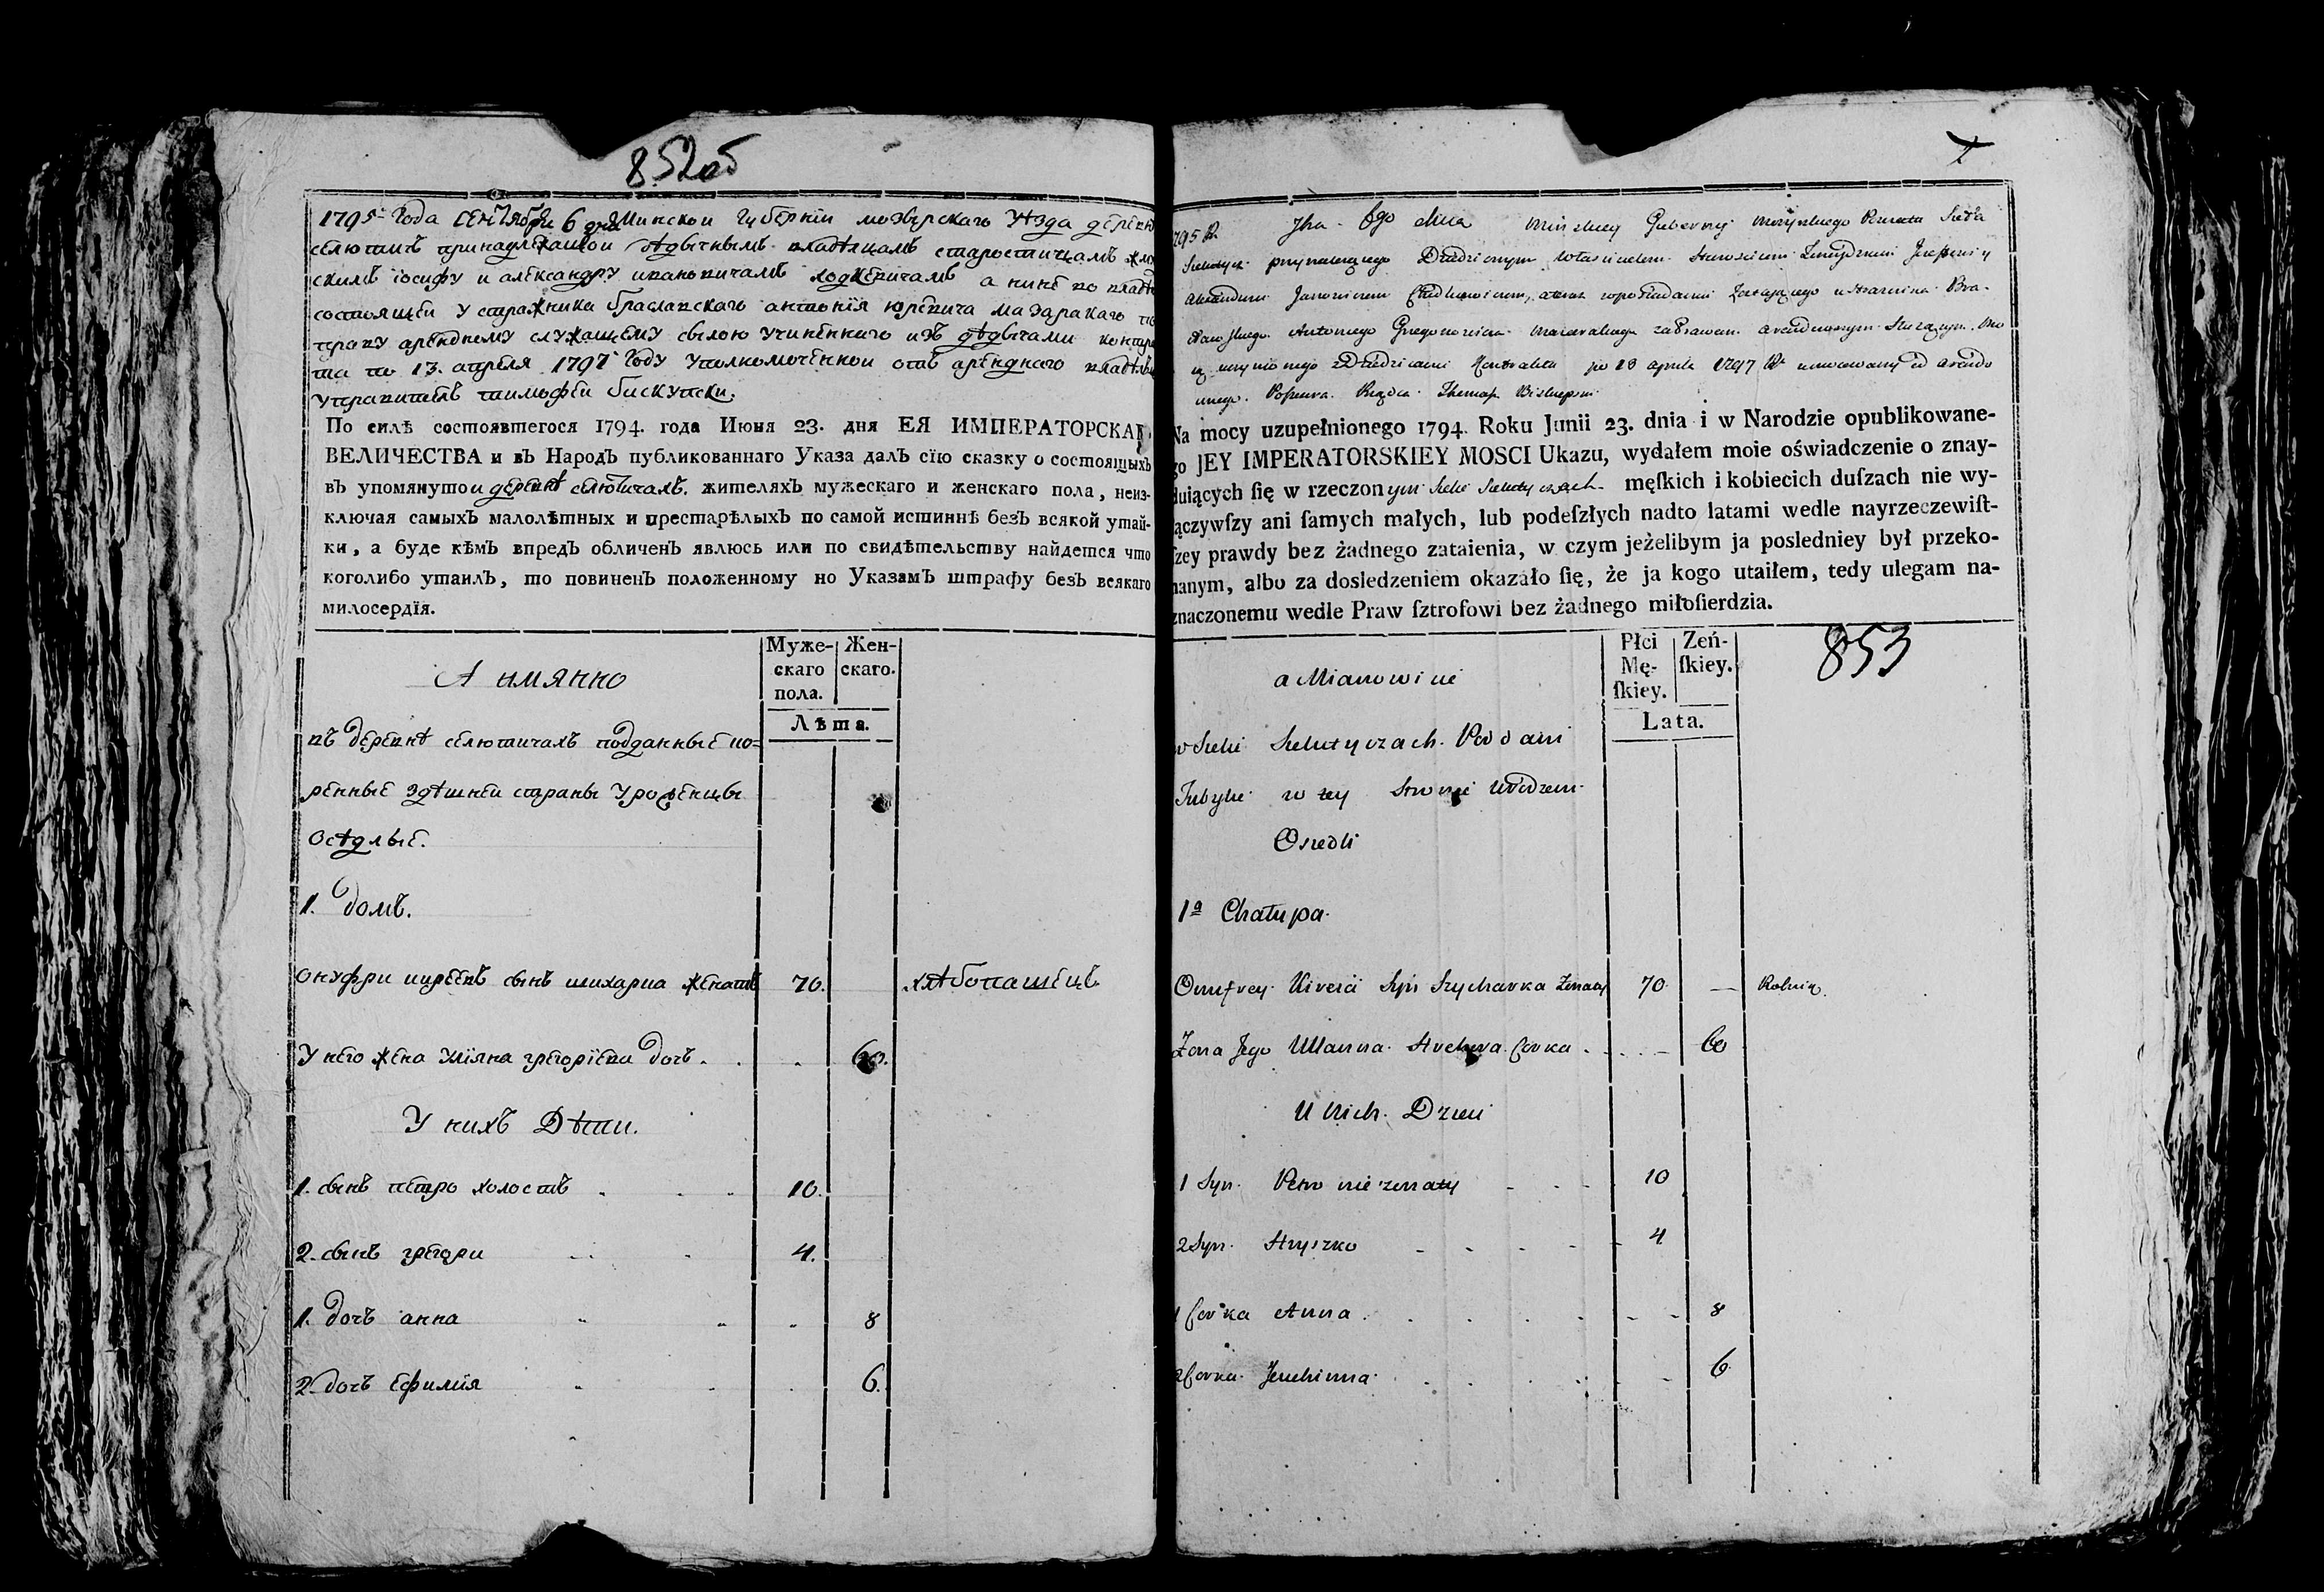 852об
1795 Года Сентября 6 дня Минской Губернїи мозырскаго уѣзда деревни
селютичъ принадлежащой дѣдычнымъ владѣльцамъ старостицамъ
скимъ іосифу и александру ивановичамъ ходкевичамъ а нинѣ во владѣ
состоящей у стражника браславскаго антонїя юревича мазаракаго по
праву арендному служащему силою учиненнаго изъ дѣдычами контра
та по 13. апреля 1797 году уполномоченной отъ аренднаго владѣльца
управитель тимофей бискупски.
По силѣ состоявшегося 1794. года Июня 23. дня ЕЯ ИМПЕРАТОРСКАГ
ВЕЛИЧЕСТВА и въ Народъ публикованнаго Указа далъ сїю сказку о состоящыхъ
въ упомянутой деревнѣ селютичахъ. жителяхъ мужескаго и женскаго пола, неиз-
ключая самыхъ малолѣтных и престарѣлыхъ по самой истиннѣ безъ всякой утай-
ки, а буде кѣмъ впредъ обличенъ явлюсь или по свидѣтельству найдется что
коголибо утаилъ, то повиненъ положенному по Указамъ штрафу безъ всякаго
милосердїя.
Муже-
скаго
пола.
Жен-
скаго.
Лѣта.
А имянно
въ деревнѣ селютичахъ подданные ко=
ренные здѣшней страны уроженцы
осѣдлые.
1. домъ.
онуфри киреевъ сынъ шихарка женатъ 70. хлѣбопашецъ
у него жена уліяна грегорїева дочь 60.
У нихъ Дѣти.
1. сынъ петро холостъ 10.
2. сынъ грегори 4.
1. дочь анна 8
2. дочь ефимія 6.
795 R. 6go dnia Minskiey Gubernij Mozyrskiego Powiatu Sioła
przynależącego Dziedzicznym Właścicielom
Antoniego
Kontraktu po 13 aprila 1797 R
Rządca Biskupski
Na mocy uzupełnionego 1794. Roku Junii 23. dnia i w Narodzie opublikowane-
go JEY IMPERATORSKIEY MOSCI Ukazu, wydałem moie oświadczenie o znay-
duiących ſię w rzeczonym Siele Sielutyczach męſkich i kobiecich duſzach nie wy-
łączywſzy ani ſamych małych, lub podeſzłych nadto latami wedle nayrzeczewiſt-
ſzey prawdy bez żadnego zataienia, w czym jeżelibym ja posledniey był przeko-
nanym, albo za dosledzeniem okazało ſię, że ja kogo utaiłem, tedy ulegam na-
znaczonemu wedle Praw ſztrofowi bez żadnego miłoſierdzia.
Płci
Mę-
ſkiey.
Zeń-
ſkiey.
Lata.
853
a Mianowicie
w Siele Sielutyczach. Poddani
w tey Stronie
Osiedli
1a Chałupa.
Onufrey Kireia Syn Szycharka Żonaty 70 — Rolnik.
Żona Jego Ullanna Corka 60
U Nich Dzieci
1 Syn Petro nieżonaty 10
2 Syn Hryszko 4
1 Corka Anna 8
2 Corka Jeuchimia 6